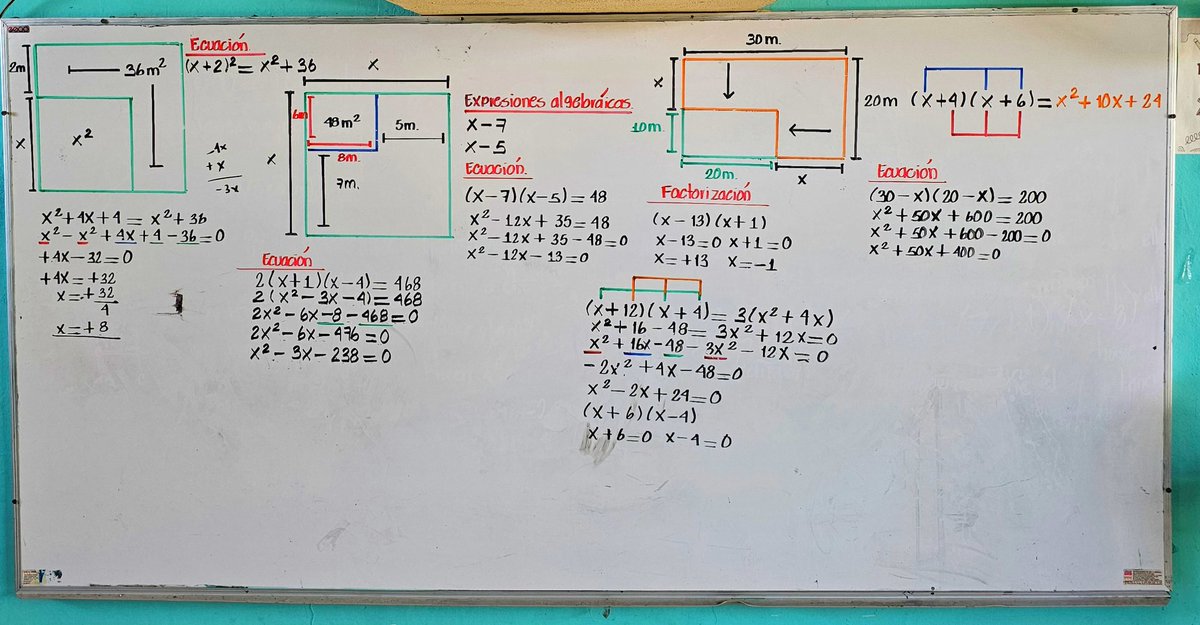 2m
36m²
x
x²
Ecuación
(x+2)² = x² + 36
x² + 4x + 4 = x² + 36
x² - x² + 4x + 4 - 36 = 0
+4x - 32 = 0
+4x = +32
x = +32/4
x = +8
-4x
+x
-3x
x
x
6m
48m²
8m.
5m.
7m.
Ecuación
2(x+1)(x-4) = 468
2(x² - 3x - 4) = 468
2x² - 6x - 8 - 468 = 0
2x² - 6x - 476 = 0
x² - 3x - 238 = 0
Expresiones algebráicas.
x - 7
x - 5
Ecuación.
(x-7)(x-5) = 48
x² - 12x + 35 = 48
x² - 12x + 35 - 48 = 0
x² - 12x - 13 = 0
30m.
x
10m.
20m
20m.
x
Factorización
(x-13)(x+1)
x-13=0 x+1=0
x=+13 x=-1
(x+12)(x+4) = 3(x²+4x)
x² + 16 - 48 = 3x² + 12x = 0
x² + 16x - 48 - 3x² - 12x = 0
-2x² + 4x - 48 = 0
x² - 2x + 24 = 0
(x+6)(x-4)
x+6=0 x-4=0
(x+4)(x+6) = x² + 10x + 24
Ecuación
(30-x)(20-x) = 200
x² + 50x + 600 = 200
x² + 50x + 600 - 200 = 0
x² + 50x + 400 = 0